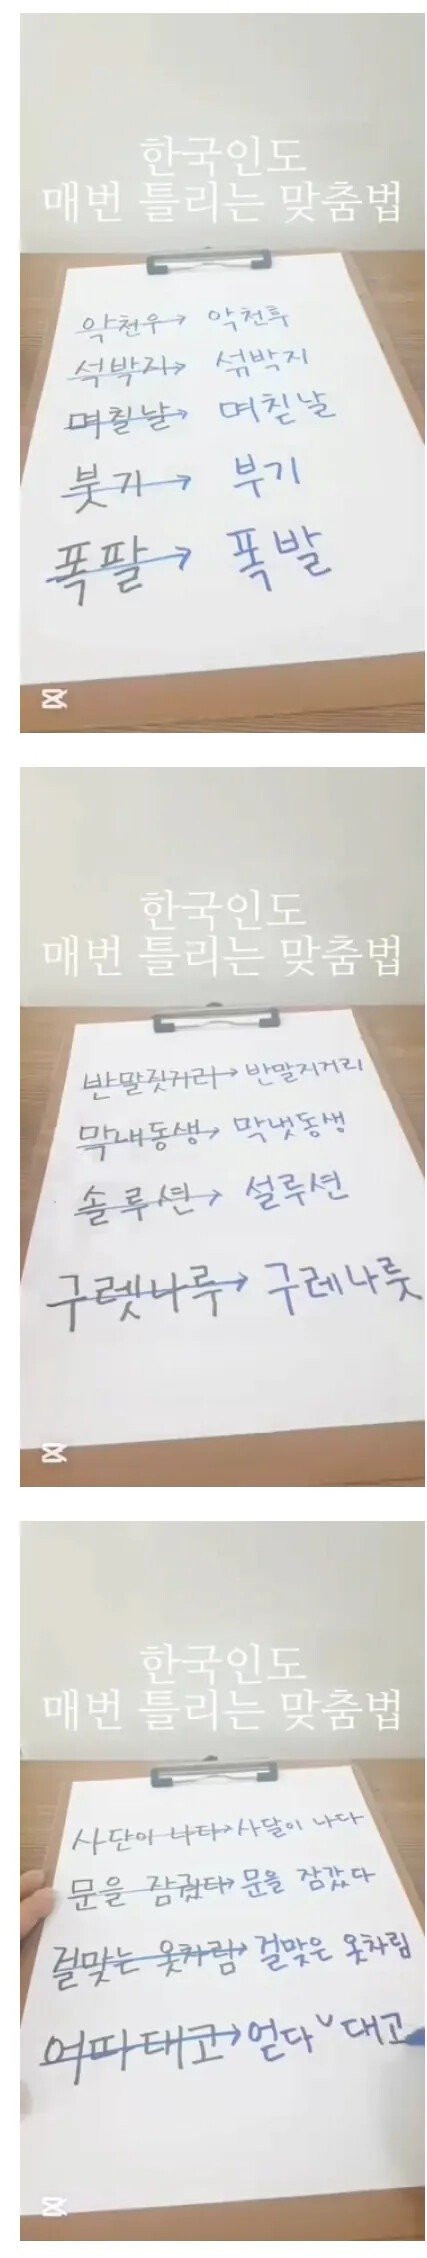 한국인도
매번 틀리는 맞춤법
악천우→ 악천후
석박지→ 섞박지
며칠날→ 며칟날
붓기→ 부기
폭팔→ 폭발
한국인도
매번 틀리는 맞춤법
반말짓거리→ 반말지거리
막내동생→ 막냇동생
솔루션→ 설루션
구렛나루→ 구레나룻
한국인도
매번 틀리는 맞춤법
사단이 나다→사달이 나다
문을 잠궜다→문을 잠갔다
걸맞는 옷차림→걸맞은 옷차림
여따 대고→얻다∨대고